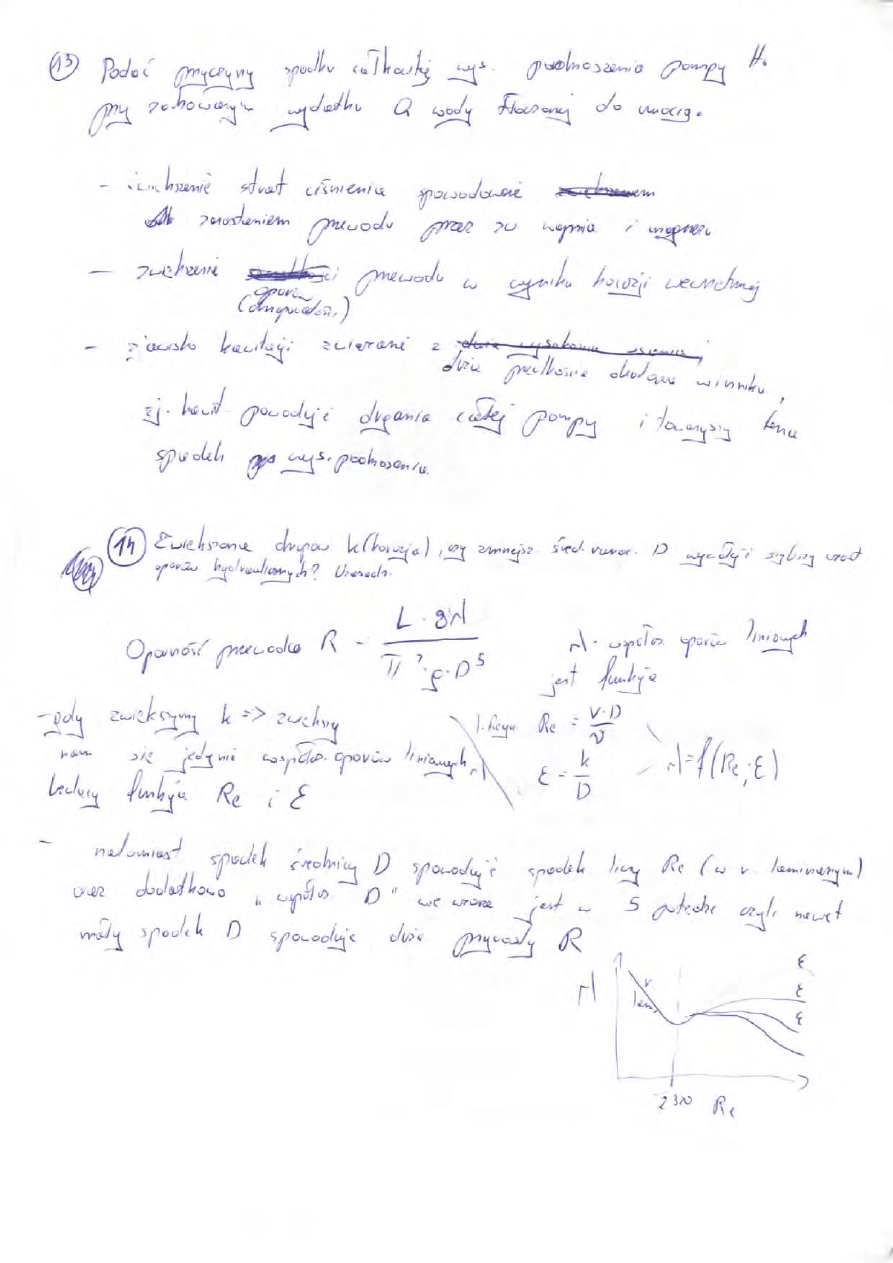 13 Podać przyczyny spadku całkowitej wys. podnoszenia pompy H.
przy zachowanym wydatku Q wody tłoczonej do rurociąg.
- zwiększenie strat ciśnienia spowodowane
zarastaniem przewodu przez zw wapnia i magnezu
- zwiększenie przewodu w wyniku korozji wewnętrznej
oporów
(chropowatości)
- zjawisko kawitacji związane z
duża prędkością obotową wirnika,
zj. kawit. powoduje drgania całej pompy i towarzyszy temu
spadek wys. podnoszenia.
14 Zwiększanie chropow k(korozja), czy zmniejsz. śred. D wywoła szybszy wzrost
oporów hydraulicznych? Uzasadn.
Oporność przewodu R = L · 8λ / π² · g · D⁵
λ - współ. oporów liniowych
jest funkcją
- gdy zwiększymy k => zwiększy
nam się jedynie współ. oporów liniowych λ
będący funkcją Re i ε
l. Reyn. Re = V·D / ν
ε = k / D
λ = f(Re; ε)
- natomiast spadek średnicy D spowoduje spadek liczby Re (w r. laminarnym)
oraz dodatkowo „współ. D" we wzorze jest w 5 potędze czyli nawet
mały spadek D spowoduje duże przyrosty R
λ
r
lam.
ε
ε
ε
2320 Re